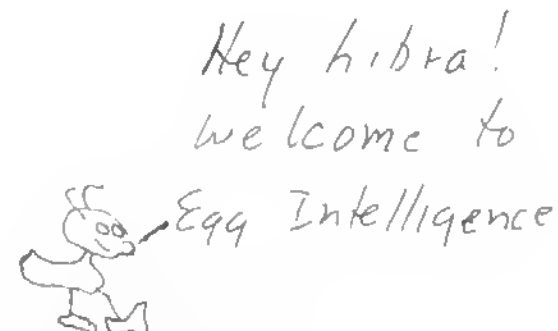 Hey hibra!
Welcome to
Egg Intelligence